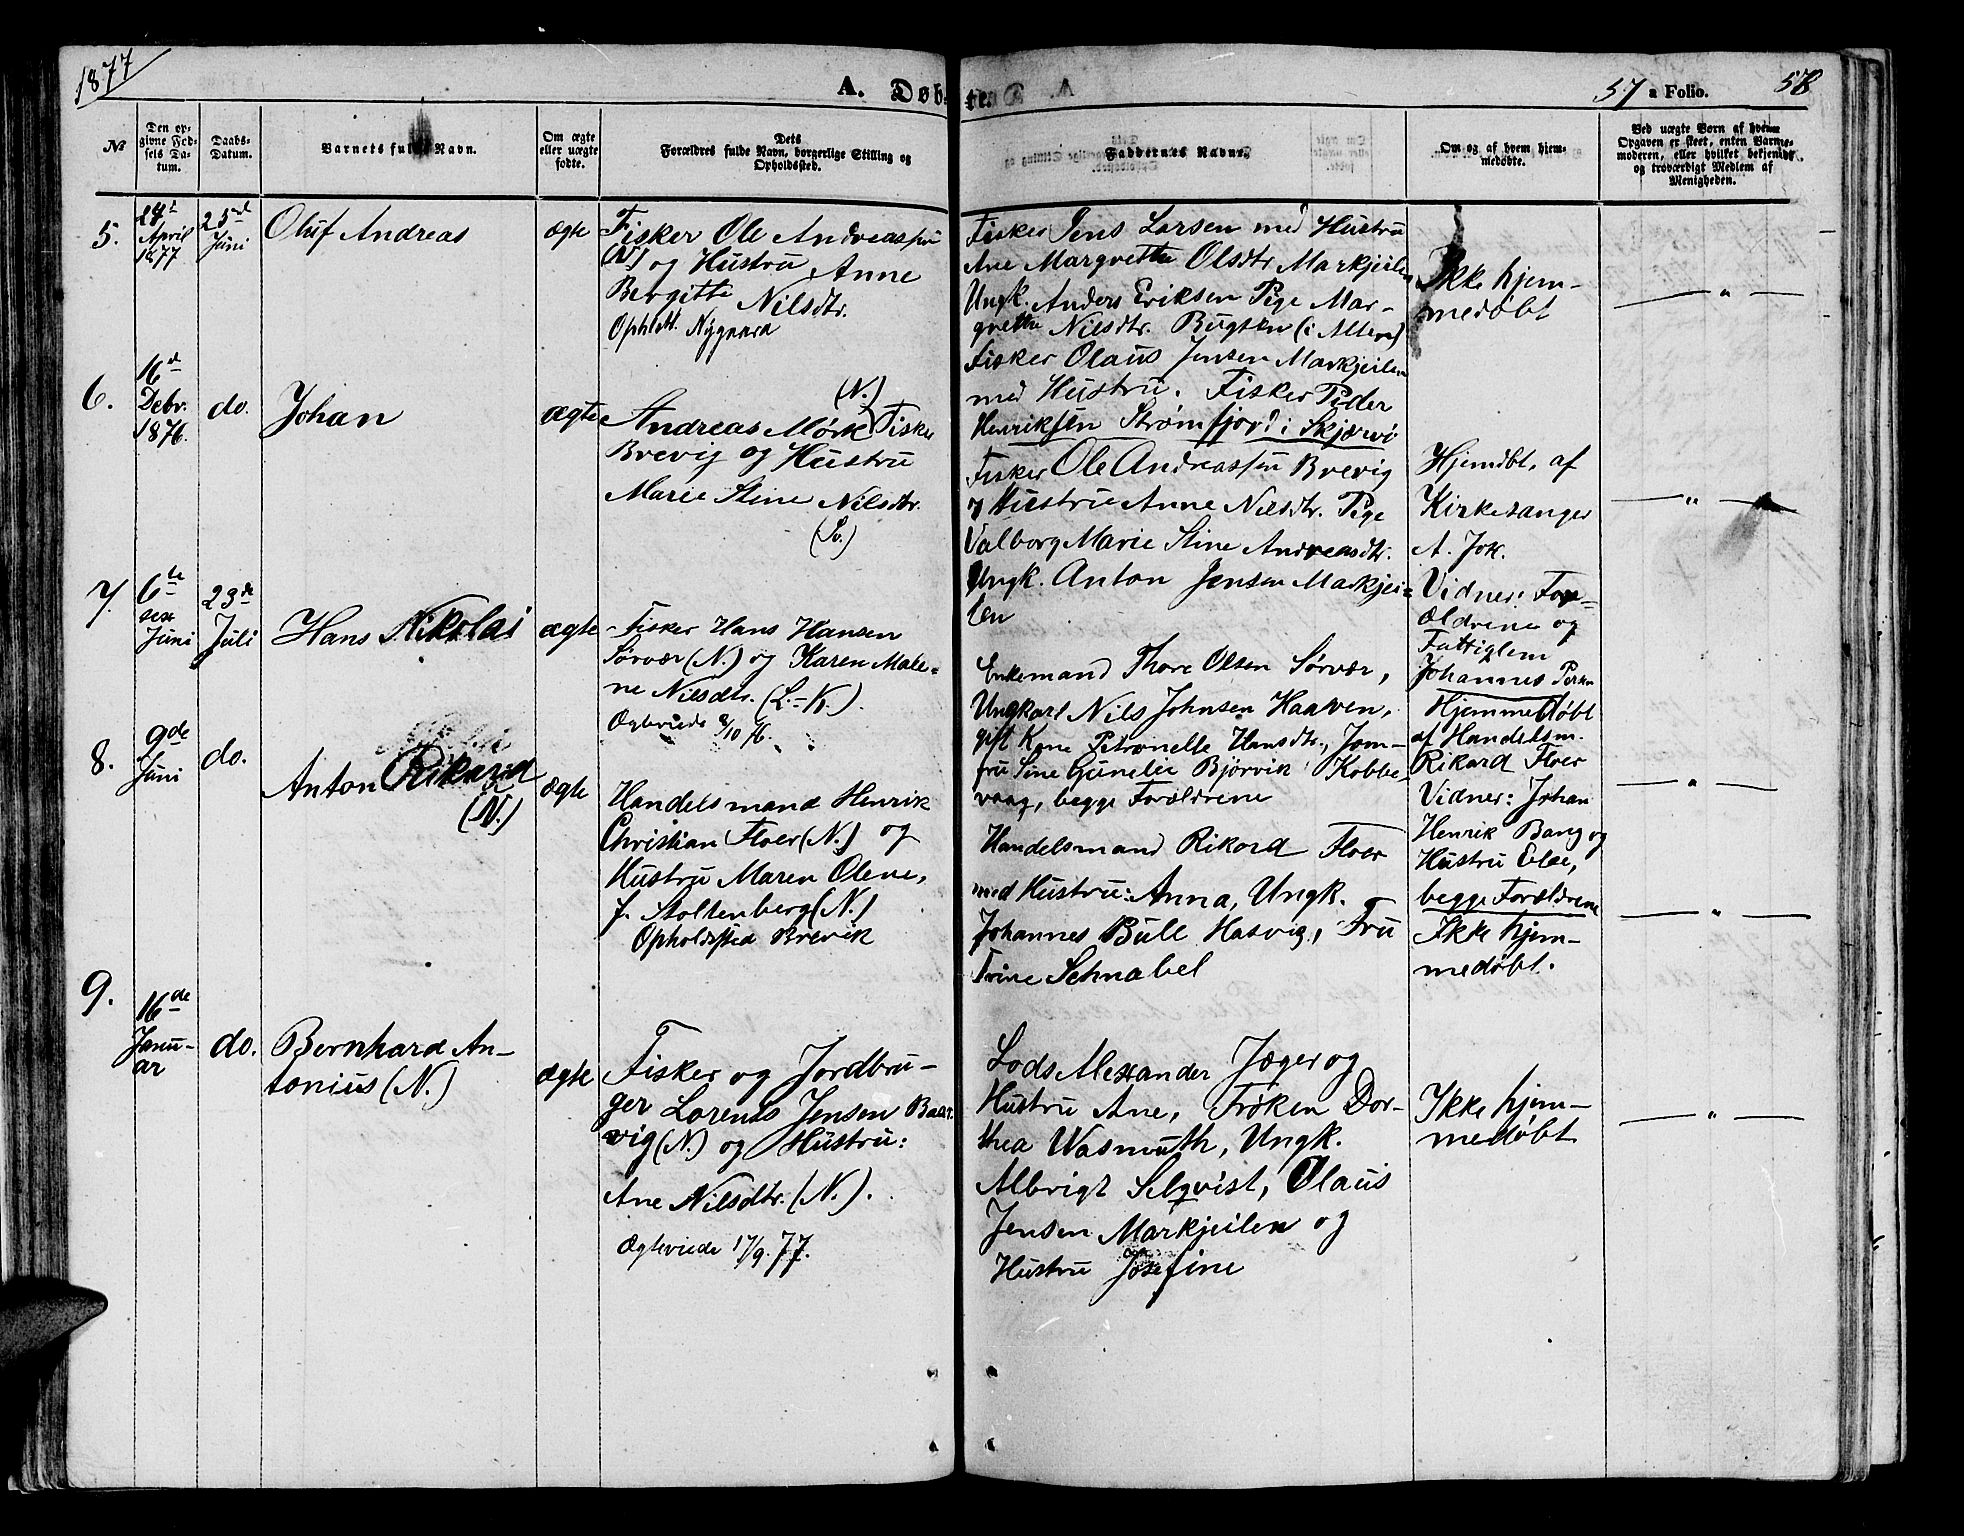 1877
A. Døbte.
57 a Folio. 58
№
Den opgivne Fødsels Datum.
Daabs-Datum.
Barnets fulde Navn.
Om ægte eller uægte fødte.
Dets Forældres fulde Navn, borgerlige Stilling og Opholdssted.
Faddernes Navne.
Om og af hvem hjemmedøbte.
Ved uægte Børn af hvem Opgaven er skeet, enten Barnemoderen, eller hvilket bekjendt og troværdigt Medlem af Menigheden.
5.
24de
April
1877
23de
Juni
Oluf Andreas
ægte
Fisker Ole Andreassen
(N) og Hustru Anne
Bergitte Nilsdtr.
Opholdst. Nygaard
Fisker Jens Larsen med Hustru
Ane Margrethe Olsdtr Markjeilen
Ungk. Anders Eriksen Pige Mar-
grethe Nilsdtr. Bugten (i Alten)
Fisker Olaus Jensen Markjeilen
med Hustru. Fisker Peder
Henriksen Strømfjord i Skjærvø
Ikke hjem-
medøbt
— " —
6.
16d
Debr.
1876.
do.
Johan
ægte
(N.)
Andreas Mørk Fisker
Brevig og Hustru
Marie Stine Nilsdtr.
(Lv.)
Fisker Ole Andreassen Brevig
og Hustru Anne Nilsdtr. Pige
Valborg Marie Stine Andreasdtr.
Ungk. Anton Jensen Markjei-
len
Hjemdbt. af
Kirkesanger
A. Joh.
Vidner: For-
ældrene og
Fattiglem
Johannes
— " —
7.
6te
Juni
23de
Juli
Hans Nikolai
ægte
Fisker Hans Hansen
Sørvær (N.) og Karen Male-
ne Nilsdtr. (L.-K.).
Ægteviede 8/10 76.
Enkemand Thore Olsen Sørvær,
Ungkarl Nils Johnsen Haaven,
gift Kone Petronelle Hansdtr., Jom-
fru Sine Gunelie Bjørvik Kobbe-
vaag, begge Forældrene
Hjemmedøbt
af Handelsm.
Rikard Floer
Vidner: Johan
Henrik Bang og
Hustru Else,
begge Forældrene
— " —
8.
9de
Juni
do.
Anton Rikard
(N.)
ægte
Handelsmand Henrik
Christian Floer (N.) og
Hustru Maren Olene,
f. Stoltenberg (N.)
Opholdssted Brevik
Handelsmand Rikard Floer
med Hustru: Anna, Ungk.
Johannes Bull Hasvig, Fru
Trine Schnabel
Ikke hjem-
medøbt.
— " —
9.
16de
Janu-
ar
do.
Bernhard An-
tonius (N.)
ægte
Fisker og Jordbru-
ger Lorents Jensen Baar-
vig (N.) og Hustru:
Ane Nilsdtr. (N.).
Ægteviede 17/9.77.
Lods Alexander Jæger og
Hustru Ane, Frøken Dor-
thea Wasmuth, Ungk.
Albrigt Selqvist, Olaus
Jensen Markjeilen og
Hustru Josefine
Ikke hjem-
medøbt
— " —